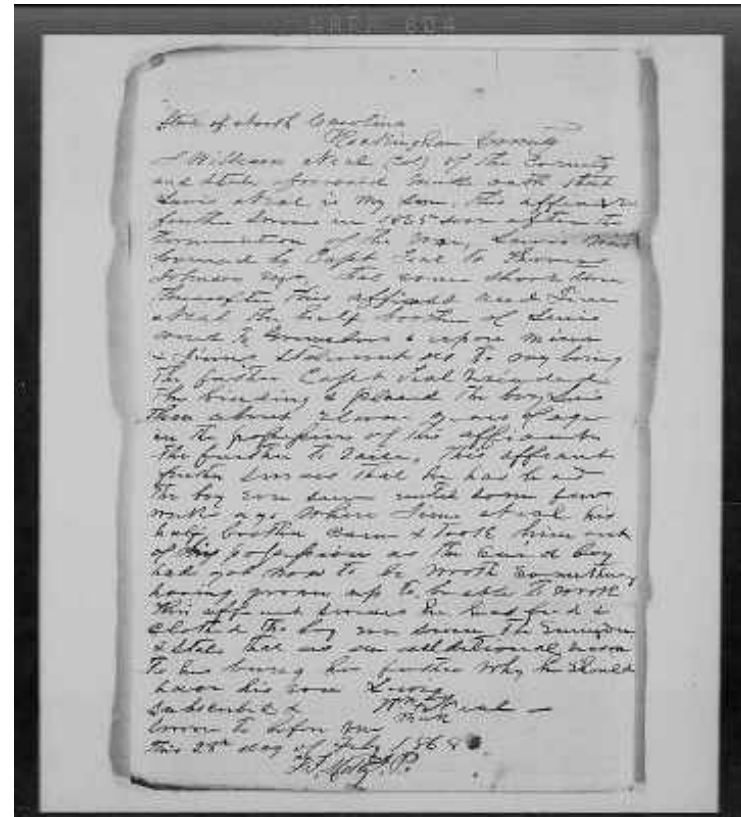 State of North Carolina
Rockingham County
I William Neal (col) of the County
and State aforesaid make oath that
Lewis Neal is my son, this affiant
further swears in 1865 soon after the
termination of the War, Lewis was
bound by Capt Teal to Thomas
Johnson Esqr, that some short time
thereafter this affiant and
Neal the half brother of Lewis
went to Greensboro & upon mine
& Statement as to my being
the father Capt Teal
the binding & placed the boy Lewis
then about eleven years of age
in the possession of this affiant
the further to raise, this affiant
further swears that he has had
the boy ever since until some few
weeks ago where Neal his
half brother came & took him out
of my possession as the said boy
had got now to be worth something
having grown up to be able to work
this affiant swears he has fed &
clothed the boy ever since the surrender
& states this as an additional reason
to his being his father why he should
have his son Lewis
Subscribed & Wm Neal
sworn to before me mark
this 28th day of Feby 1868
J.P.